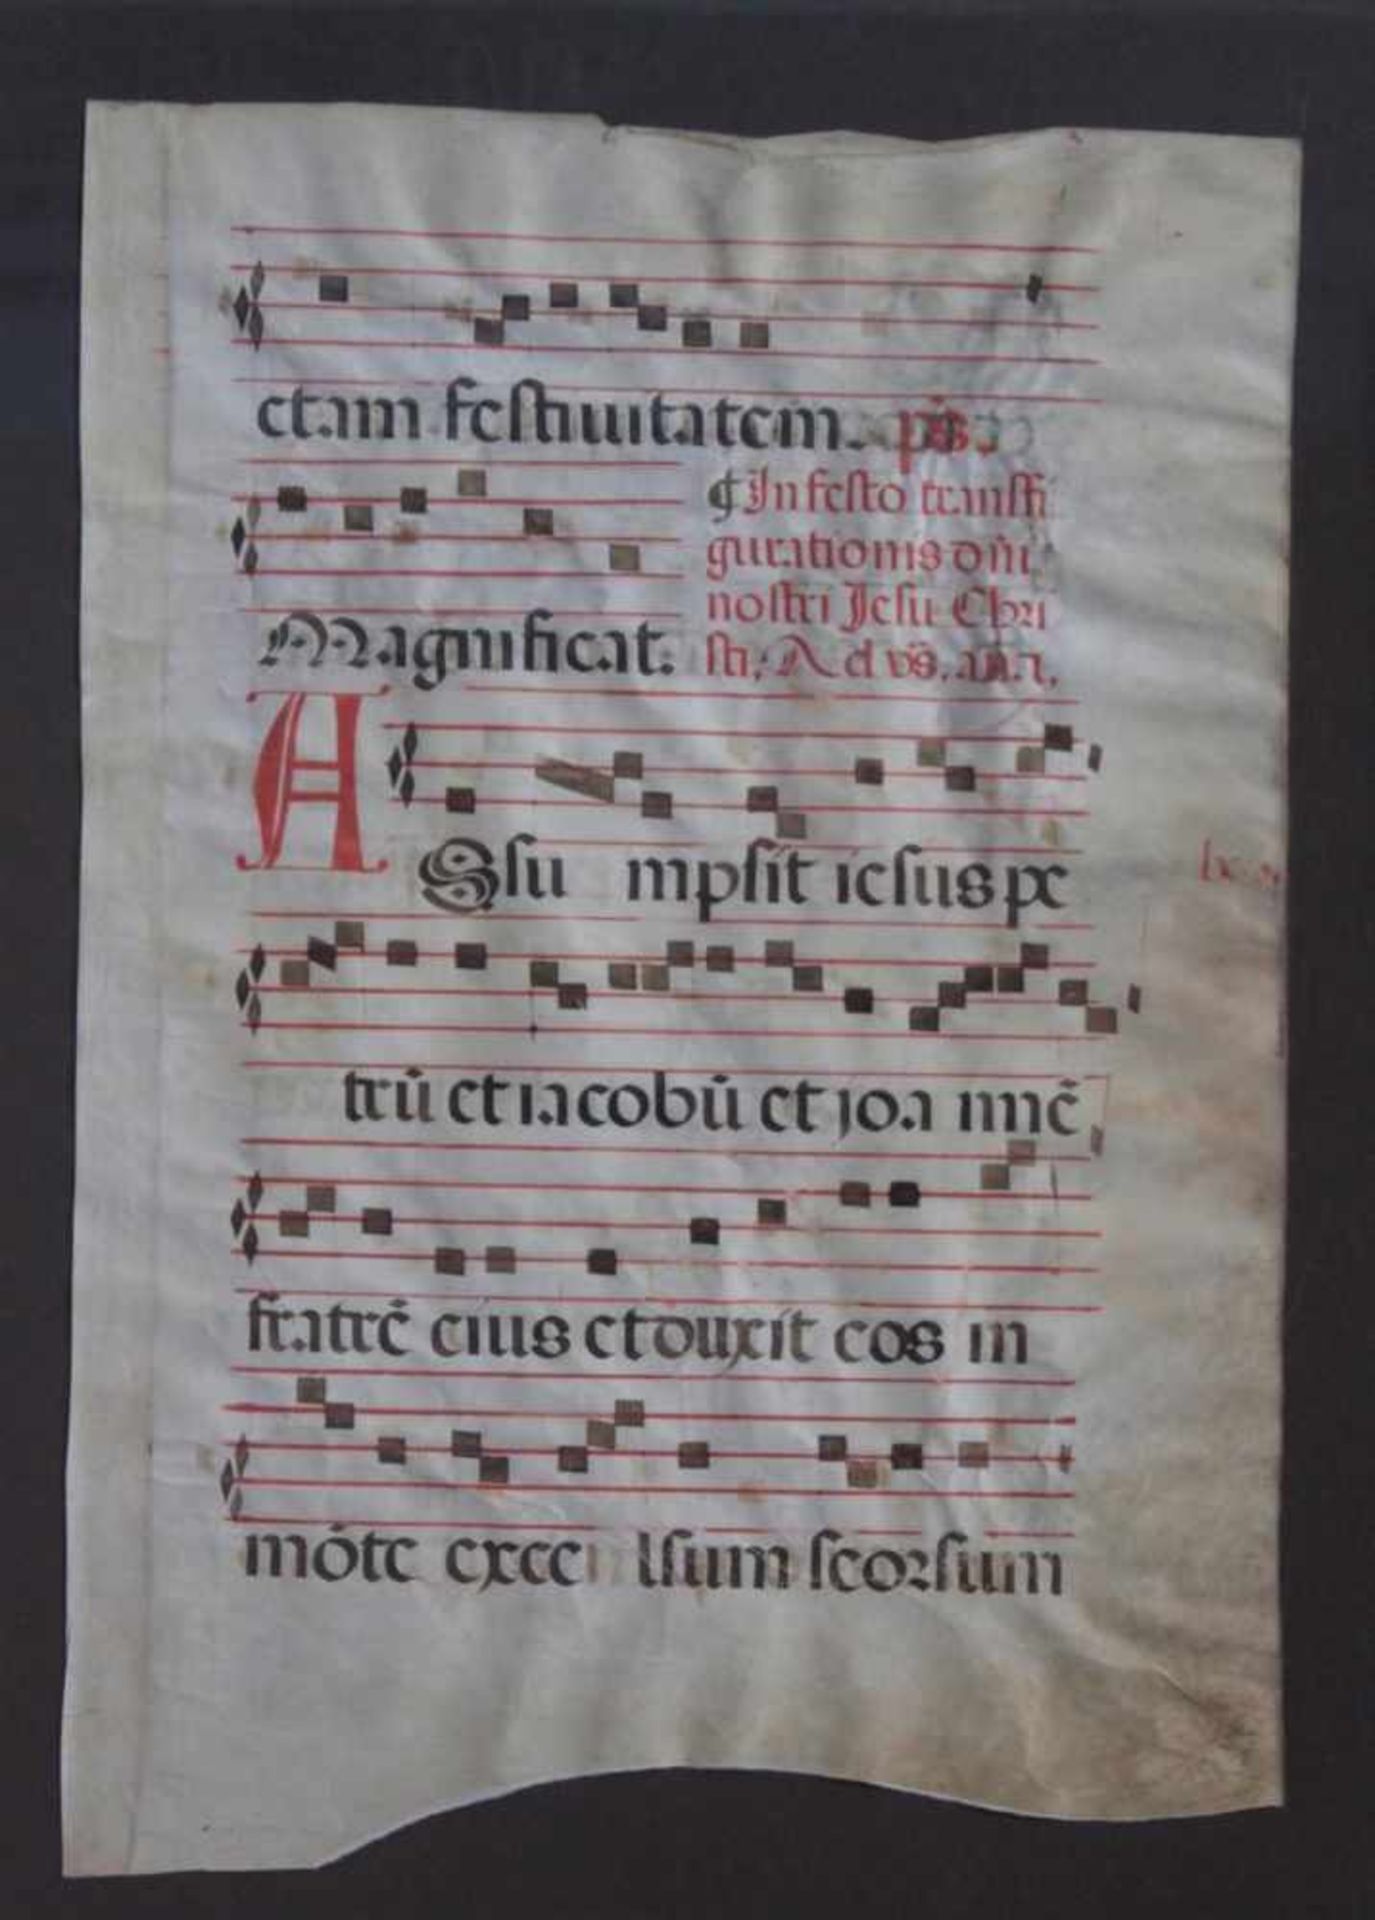 ctam festiuitatem. ps̄.
Magnificat.
¶ In festo transfi
gurationis dn̄i
nostri Jesu Chri
sti, Ad vs̄. an̄a,
ASsu mpsit iesus pe
trū et iacobū et joa nnē
fratrē eius et duxit eos in
mōte exce lsum seorsum